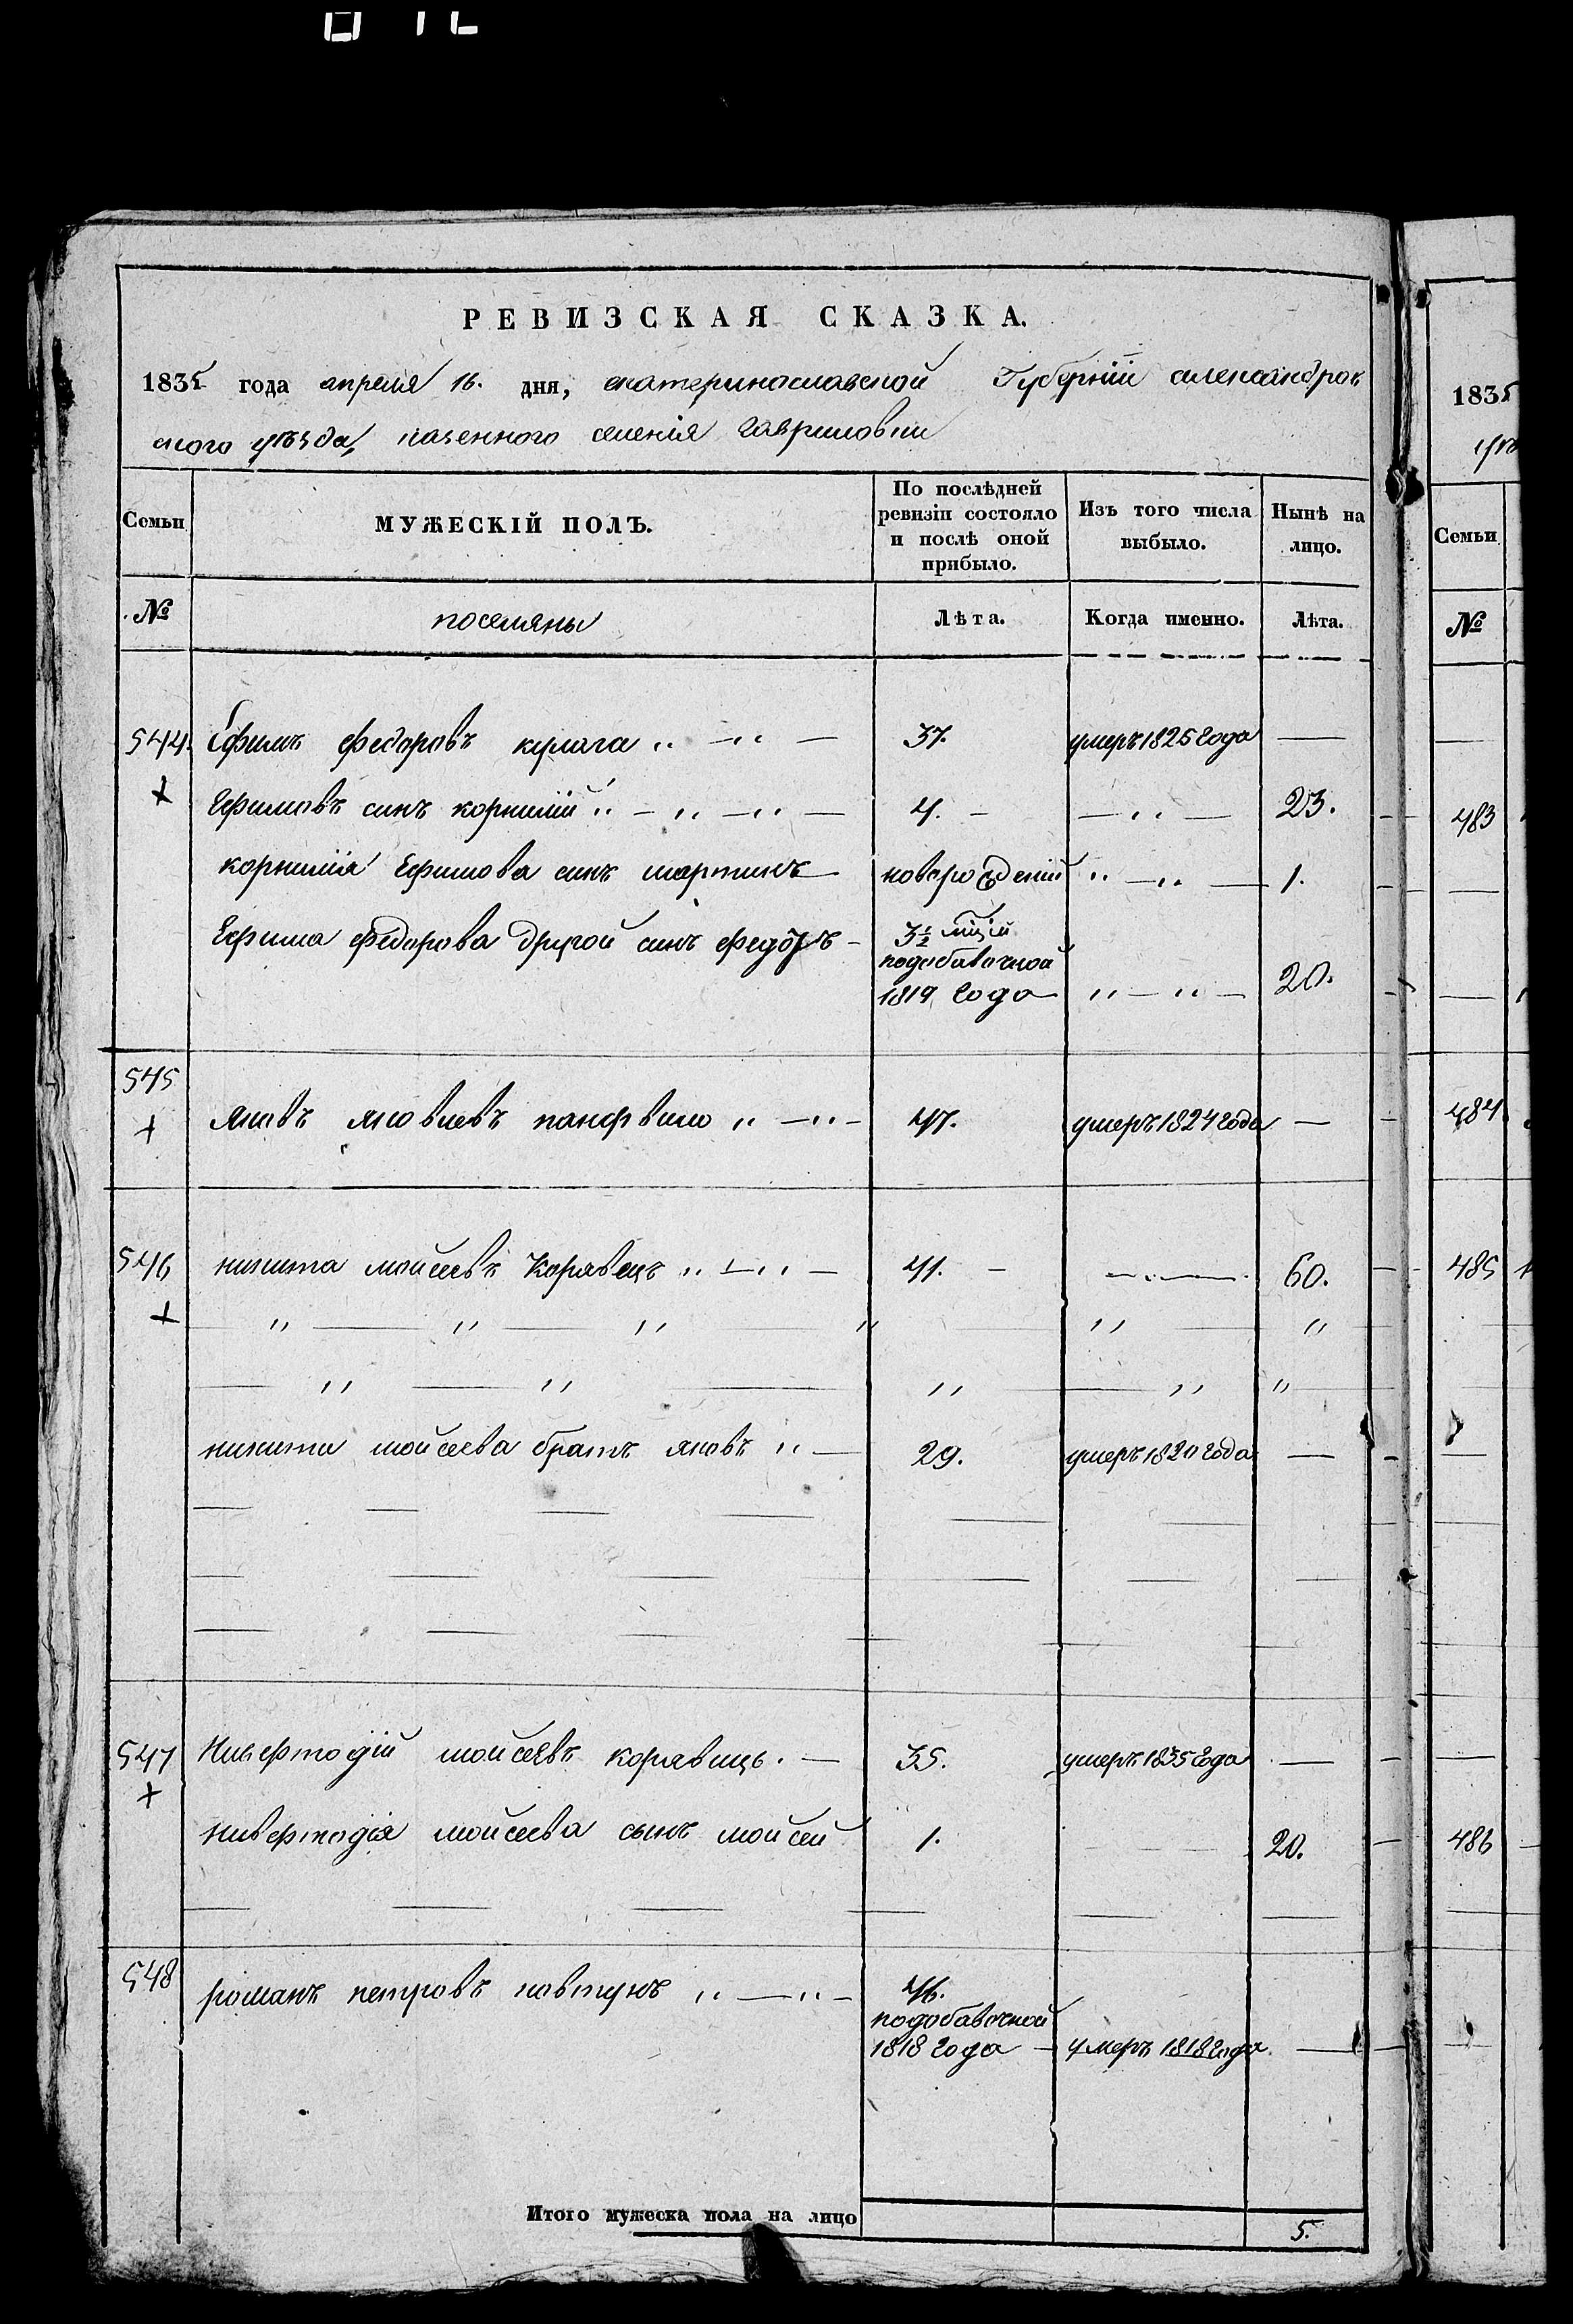 РЕВИЗСКАЯ СКАЗКА.
1835 года апреля 16. дня, екатеринославской Губерніи александров
ского уѣзда, казенного селенія Гавриловки
Семьи
МУЖЕСКІЙ ПОЛЪ.
По послѣдней ревизіи состояло и послѣ оной прибыло.
Изъ того числа выбыло.
Нынѣ на лицо.
№ поселяны Лѣта. Когда именно. Лѣта.
544. Ефимъ федоровъ кулага „ — „ — 37. умеръ 1825 года —
+ Ефимовъ синъ корнилій „ — „ — „ — 4. — — „ — 23.
корнилія Ефимова синъ мартинъ — новорожденій „ — „ — 1.
Ефима федорова другой синъ федоръ — 3½ мцій
подобавочной
1819 года — „ — „ — 20.
545
+ яковъ яковлевъ панфвило „ — „ — 47. умеръ 1824 года —
546 никита мойсеевъ Корявецъ „ — „ — 41. — — „ — 60.
+ — „ — „ — „ — „ — „ — „
— „ — „ — „ — „ „ —
никиты мойсеева братъ яковъ „ — 29. умеръ 1820 года —
547 Никефтодій мойсеевъ корявицъ. — 35. умеръ 1835 года —
+
никефтодія мойсеева сынъ мойсей 1. — — — 20.
548 романъ петровъ ковтунъ „ — „ — 46.
подобавочной
1818 года — умеръ 1818 года. —
Итого мужеска пола на лицо 5.
1835
уѣ
Семьи
№
483
484
485
486